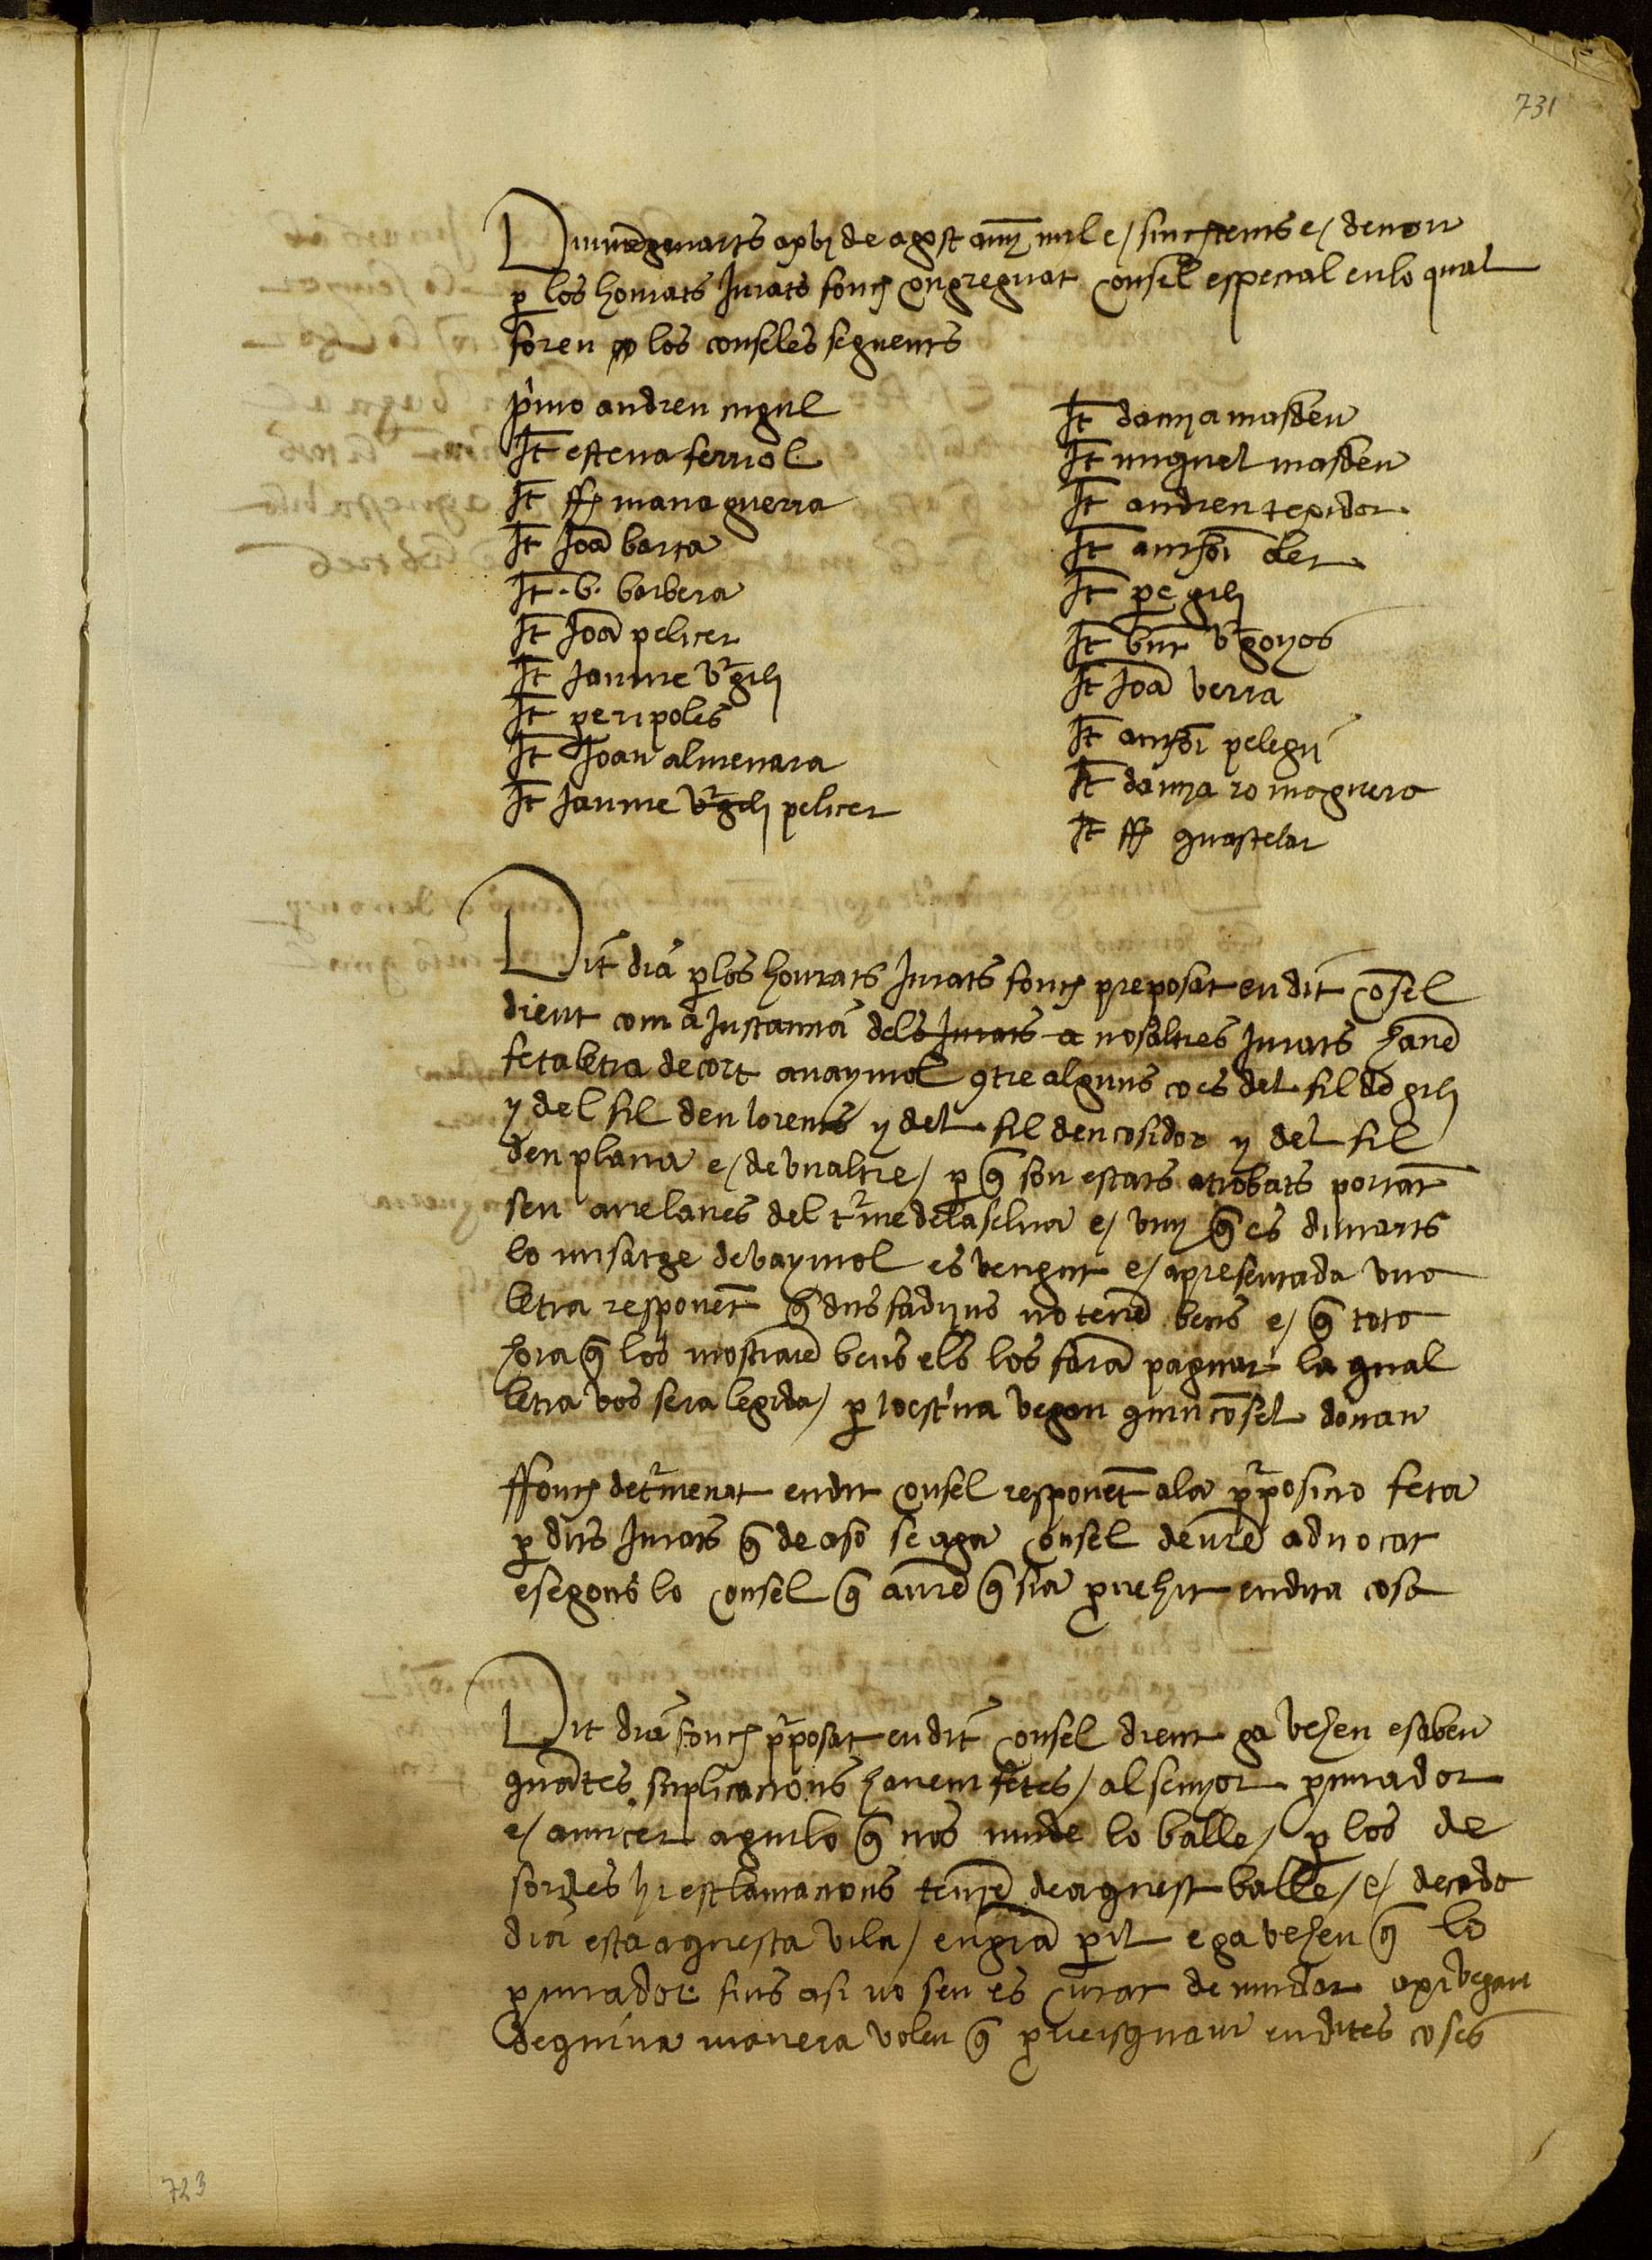 731
Diumengemarts a xvj de agost any mil e / sinchsents e / denou
p los honrats Jurats fonch congreguat consel especial en lo qual
foren p los conseles seguents
primo andreu mgul
It esteva ferriol
It ff managuerra
It Joa barta
It .b. barbera
It Joa pelicer
It Jaume vrgili
It peripoles
It Joan almenara
It Jaume vrgili pelicer
It damja masdeu
It miquel masdeu
It andreu texidor
It antoni oler
It pe gili
It bnt vrgonyos
It Joa verra
It antoni pelegri
It damja romaguera
It ff guastelar
Dit dia p los honrats Jurats fonch preposat en dit cosel
dient com a Instantia dels Jurats a nosaltres Jurats have
feta letra de cort a vaymol contre alguns co es del fil de gili
y del fil den lorens y del fil den cosidor y del fil
den plana e / de vn altre / p q son estats atrobats portat
sen avelanes del trme de la selva e / vuy q es dimarts
lo misatge de vaymol es vengut e / apresentada vna
letra responet q dits fadrins no tene bens e / q tota
hora q los mostrare bens ells los fara paguar la qual
letra vos sera legida / p so est'na vegau quin cosel donau
ffonch detrmenat en dit consel responet a la pposicio feta
p dits Jurats q de aso se aga consel de vre advocat
e segons lo consel q aure q sia provehit en dita cosa
Dit dia fonch pposat en dit consel dient ga vehen e saben
quantes suplicacions havem fetes / al senyor procurador
e / a micer aguilo q nos mude lo balle / p los de
sordes hi esclamacions tenie de aquest balle / e / de cada
dia esta aquesta vila / en gra peril e ga vehen q lo
procurador fins asi no sen es curat de mudar axi vegau
de quina manera voleu q proveiguam en dites coses
723